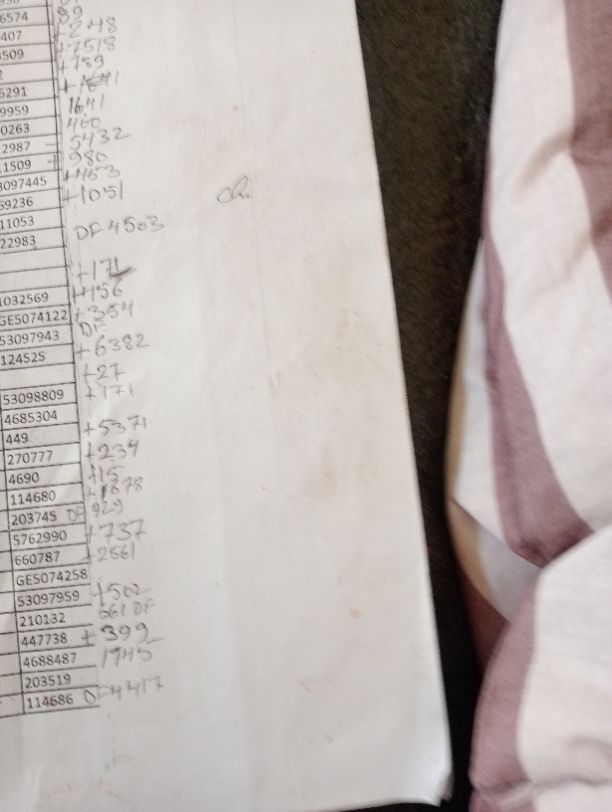 6574 89
407 +248
509 +7518
+789
5291
9959 1641
0263 460
2987 5432
1509 980
3097445 +453
69236 +1051
11053
22983 DF 4503
+171
1032569 +456
GE5074122 +354
53097943 DF
124525 +6382
+27
53098809 +171
4685304
449 +5371
270777 +234
4690 +15
114680 +1878
203745 DF 929
5762990 +737
660787 +2561
GE5074258
53097959 +502
210132 661 DF
447738 +399
4688487 1745
203519
114686 DF 4417